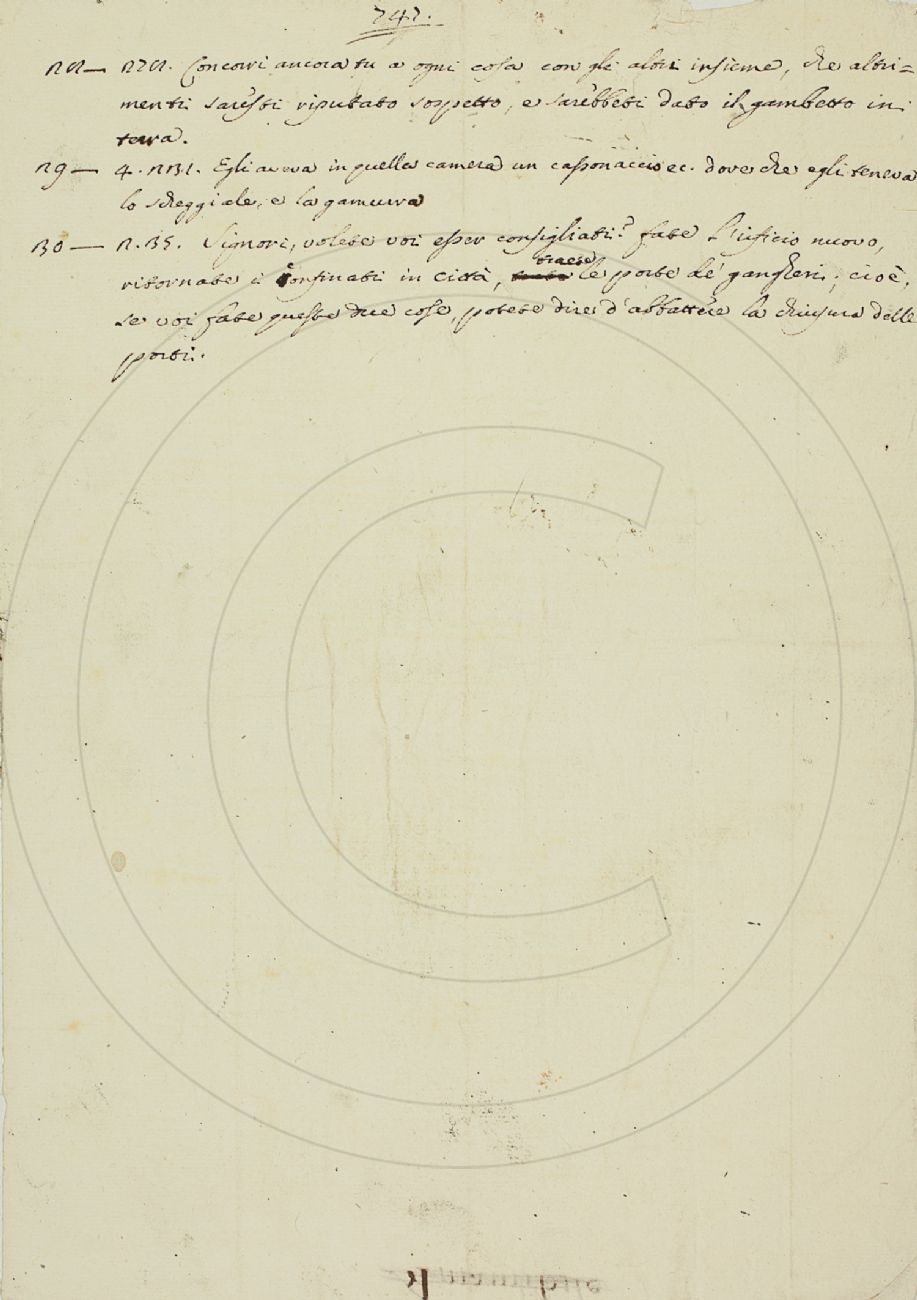 747.
28— 272. Concorri ancora tu a ogni cosa con gli altri insieme, che altri=
menti saresti riputato sospetto, e sarebbeti dato il gambetto in
terra.
29— 4. 131. Egli aveva in quella camera un cassonaccio ec. dove che egli teneva
lo scheggiale, e la gamurra
30— 2. 35. Signori, volete voi esser consigliati? fate l'uficio nuovo,
ritornate i confinati in città, traete le porte de' gangheri; cioè,
se voi fate queste due cose, potete dire d'abbattere la chiusura delle
porti.